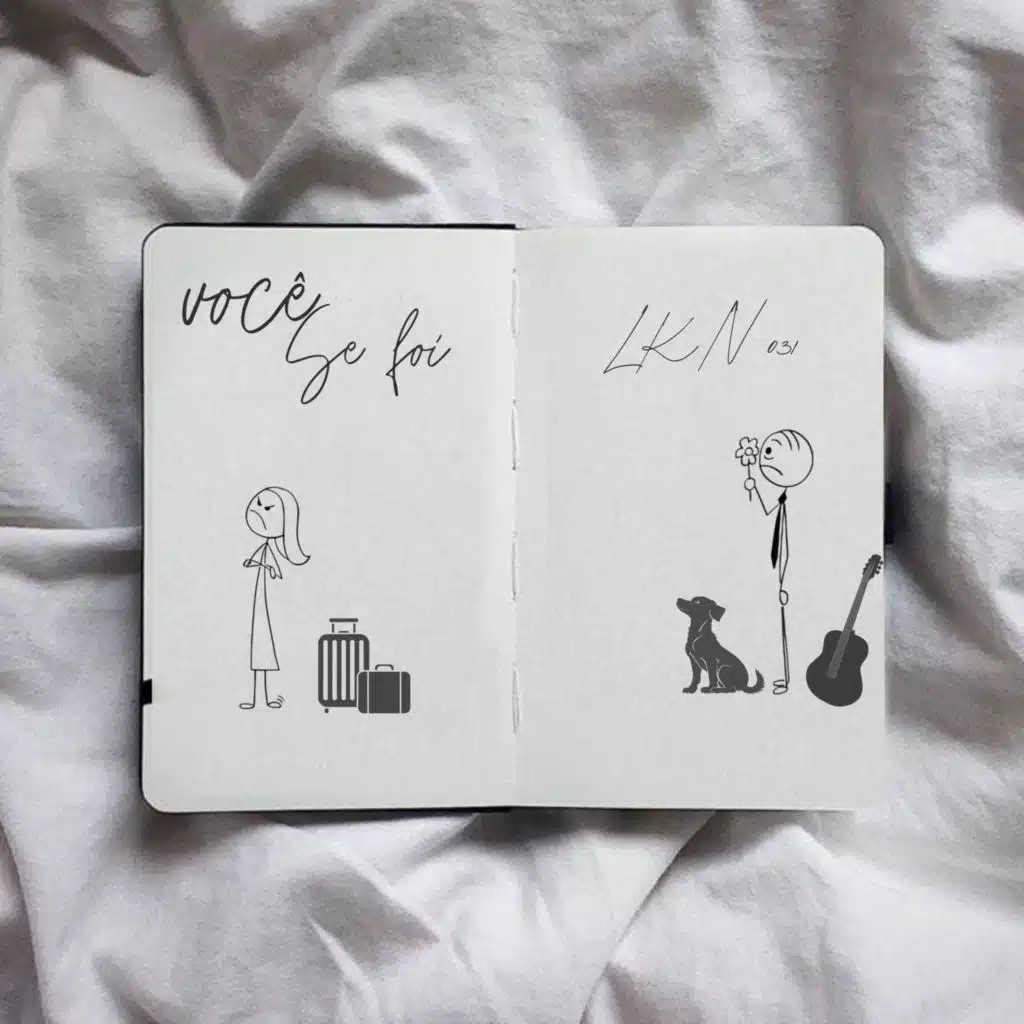 você
Se foi
LKN 031